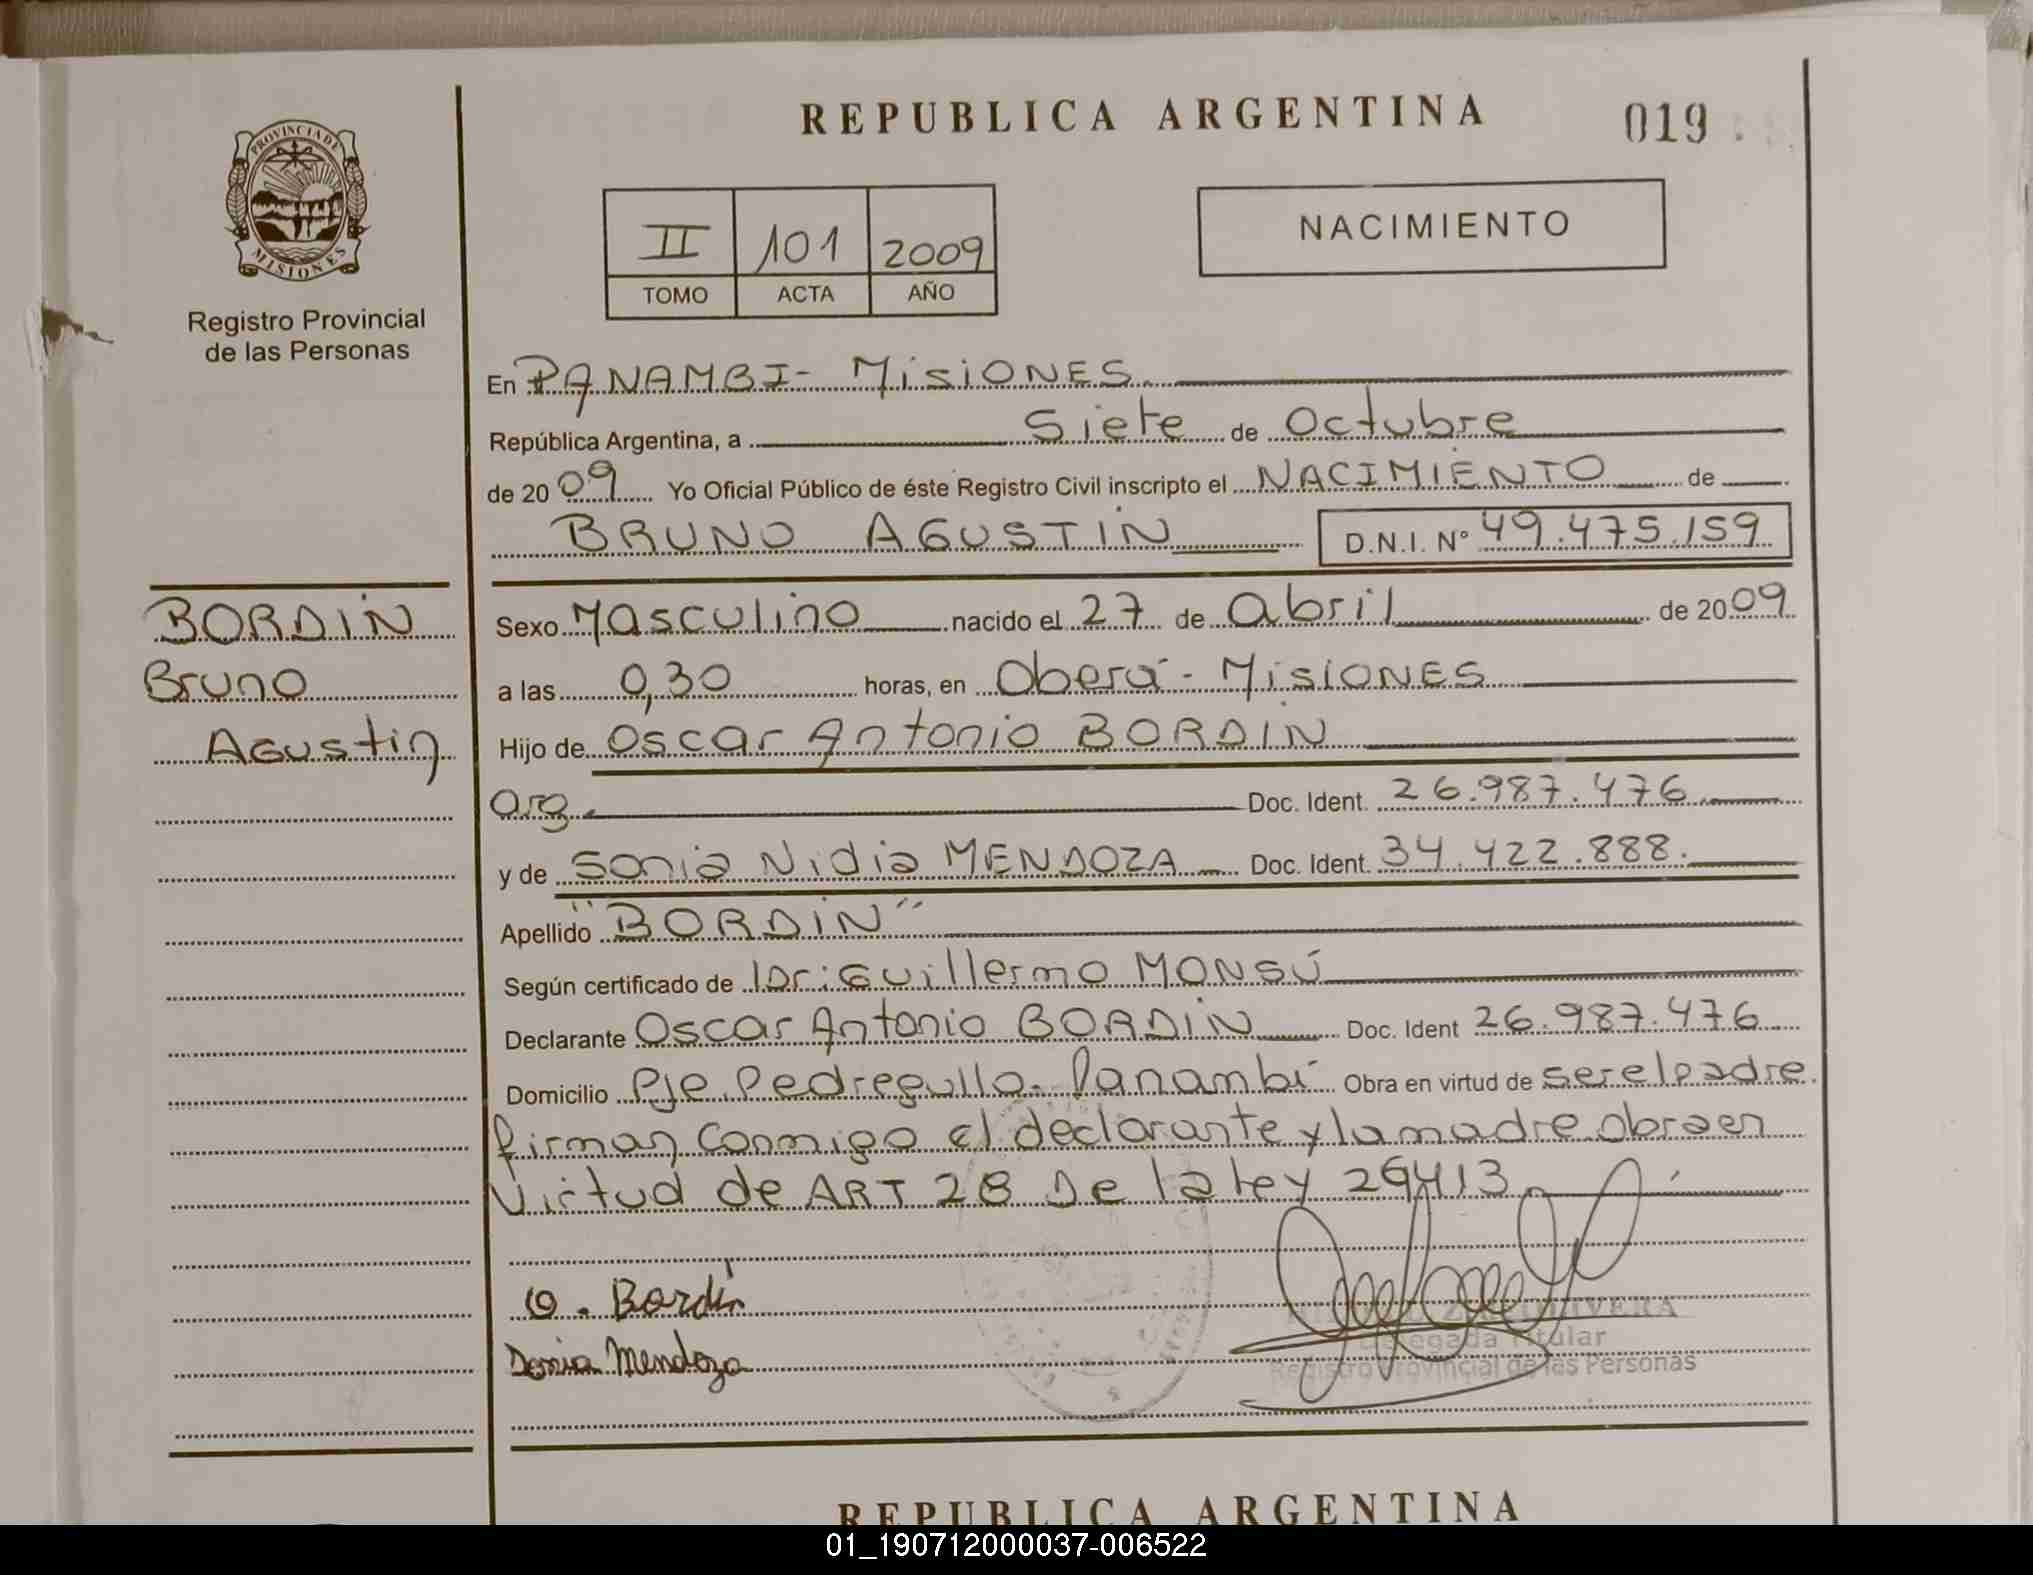 REPUBLICA ARGENTINA
019
PROVINCIA DE
MISIONES
Registro Provincial
de las Personas
II 101 2009
TOMO ACTA AÑO
NACIMIENTO
En PANAMBI- MisiONES
República Argentina, a Siete de Octubre
de 2009 Yo Oficial Público de éste Registro Civil inscripto el NACIMIENTO de
BRUNO AGUSTIN D.N.I. Nº 49.475.159
BORDIN
Bruno
Agustin
Sexo Masculino nacido el 27 de Abril de 2009
a las 0,30 horas, en Oberá - MisiONES
Hijo de Oscar Antonio BORDIN
Arg. Doc. Ident. 26.987.476
y de Sonia Nidia MENDOZA Doc. Ident. 34.422.888.
Apellido "BORDIN"
Según certificado de Dr: Guillermo MONSÚ
Declarante Oscar Antonio BORDIN Doc. Ident 26.987.476
Domicilio Pje. Pedregullo. Panambí Obra en virtud de ser el padre
firman conmigo el declarante y la madre obra en
virtud de ART 28 De la ley 26413
O. Bordin
Sonia Mendoza
OLIVERA
Delegada Titular
Registro Provincial de las Personas
REPUBLICA ARGENTINA
01_190712000037-006522